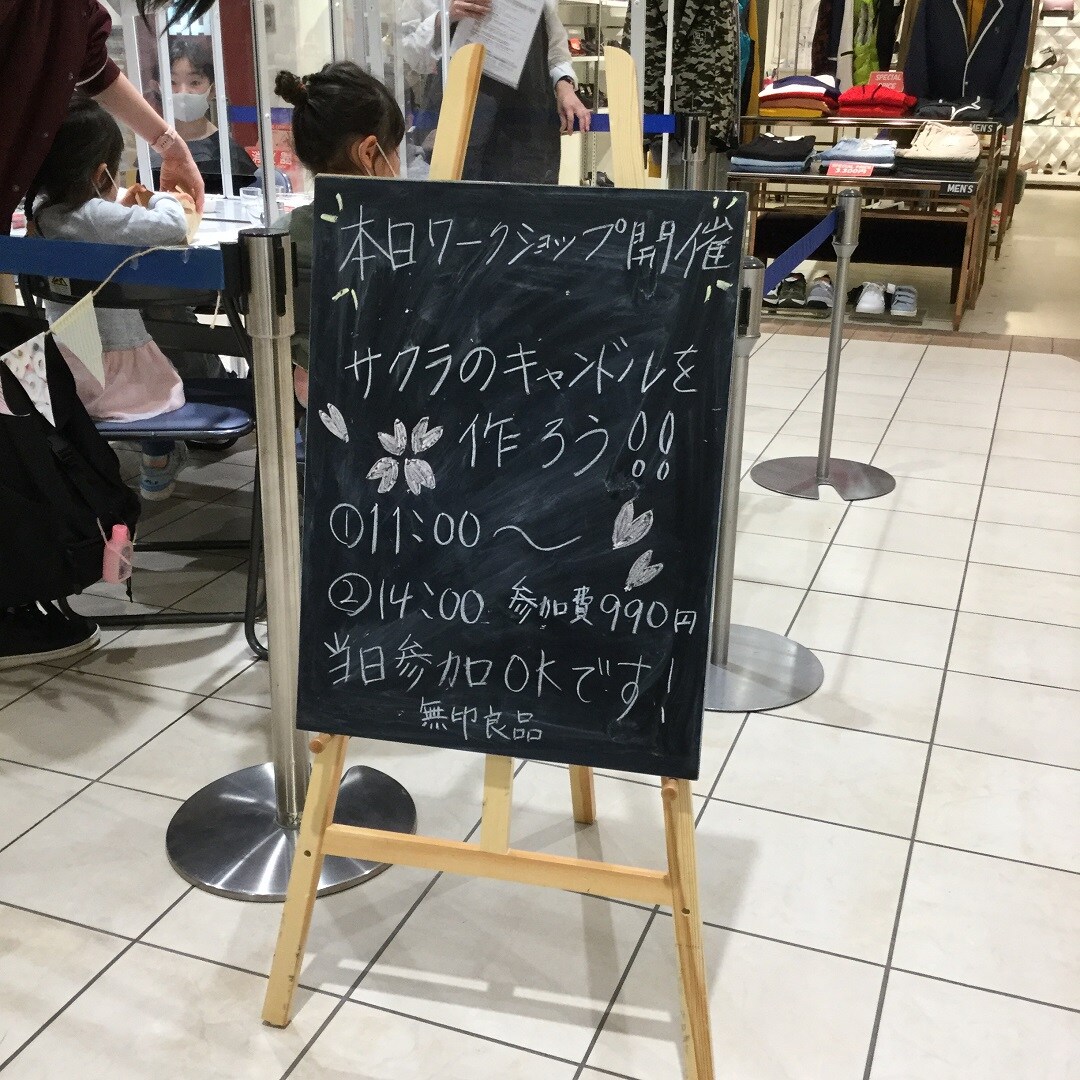 本日ワークショップ開催
サクラのキャンドルを
作ろう!!
①11:00〜
②14:00 参加費990円
当日参加OKです!
無印良品
SPECIAL
MEN'S
MEN'S